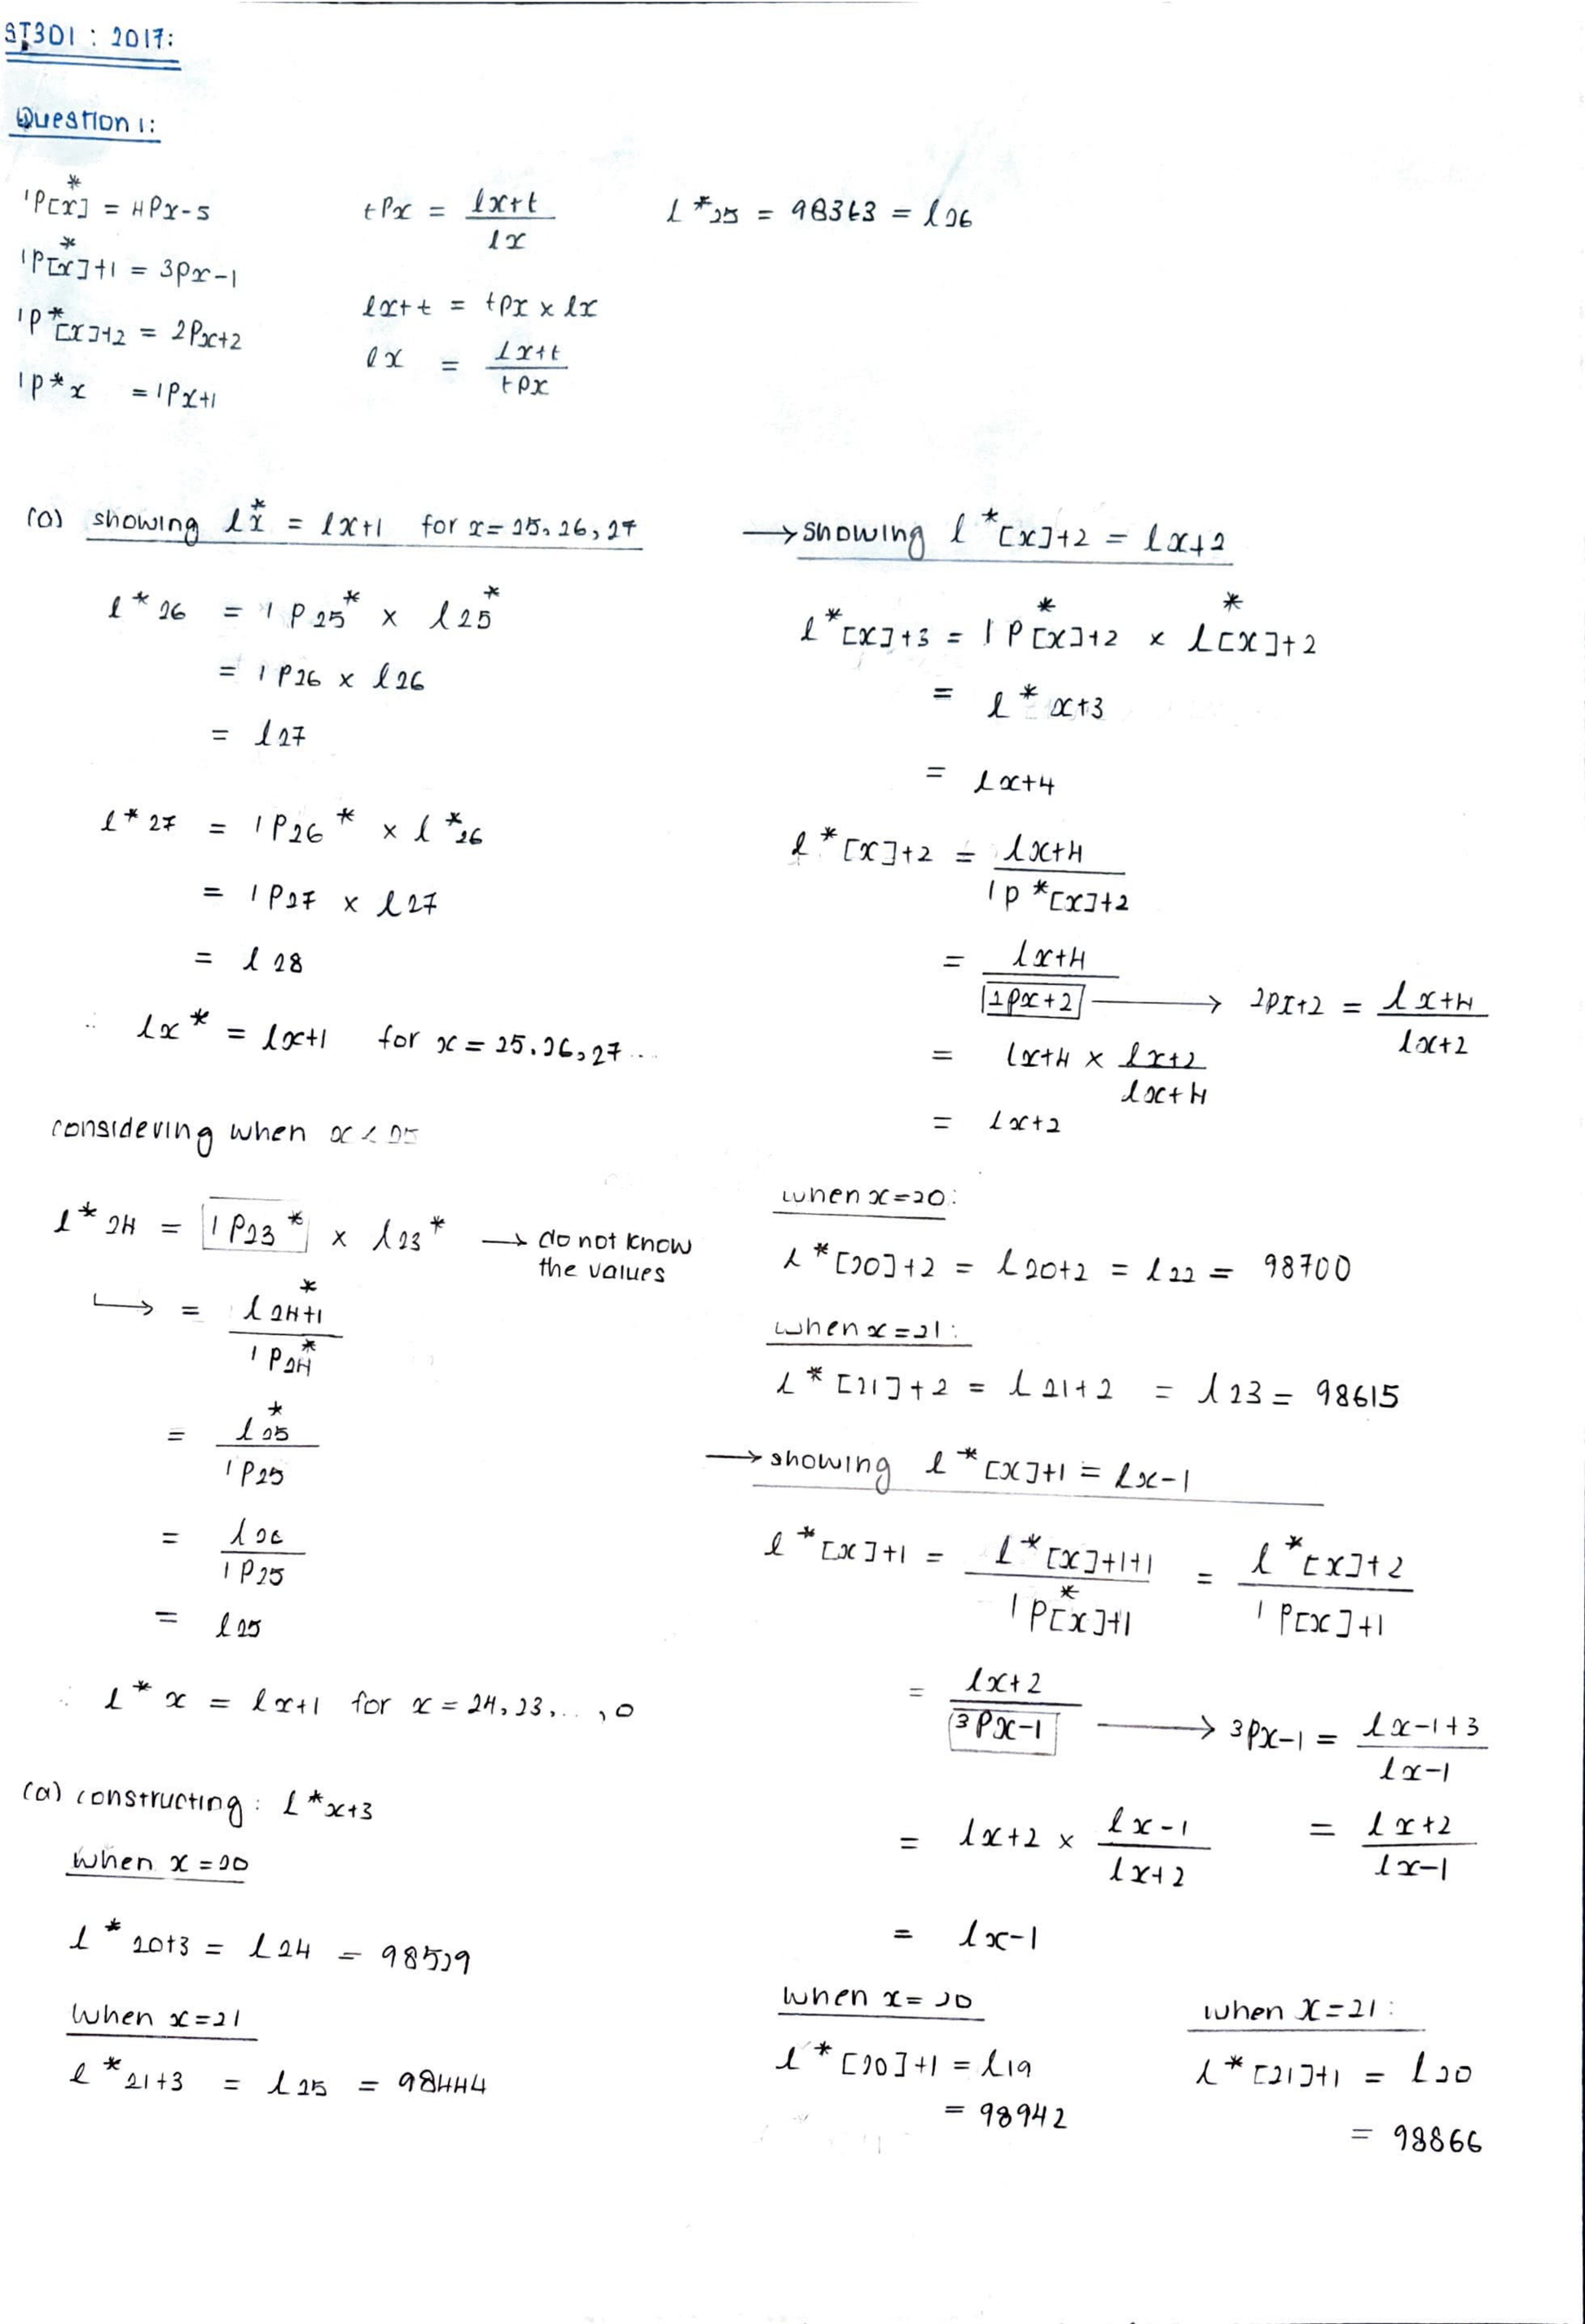 ST301 : 2017:
Question 1:
1P[x]* = 4Px-5
1P[x]*+1 = 3Px-1
1P*[x]+2 = 2Px+2
1P*x = 1Px+1
tPx = lx+t / lx
lx+t = tPx × lx
lx = lx+t / tPx
l*25 = 98363 = l26
(a) showing lx* = lx+1 for x = 25, 26, 27
l*26 = 1P25* × l25*
= 1P26 × l26
= l27
l*27 = 1P26* × l*26
= 1P27 × l27
= l28
∴ lx* = lx+1 for x = 25, 26, 27...
considering when x < 25
l*24 = 1P23* × l23* → do not know
the values
↳ = l24+1* / 1P24*
= l25* / 1P25
= l26 / 1P25
= l25
∴ l*x = lx+1 for x = 24, 23, .., 0
(a) constructing: l*x+3
when x = 20
l*20+3 = l24 = 98529
when x = 21
l*21+3 = l25 = 98444
→ showing l*[x]+2 = lx+2
l*[x]+3 = 1P[x]*+2 × l[x]*+2
= l*x+3
= lx+4
l*[x]+2 = lx+4 / 1P*[x]+2
= lx+4 / 2Px+2 → 2Px+2 = lx+4 / lx+2
= lx+4 × lx+2 / lx+4
= lx+2
when x = 20:
l*[20]+2 = l20+2 = l22 = 98700
when x = 21:
l*[21]+2 = l21+2 = l23 = 98615
→ showing l*[x]+1 = lx-1
l*[x]+1 = l*[x]+1+1 / 1P[x]*+1 = l*[x]+2 / 1P[x]+1
= lx+2 / 3Px-1 → 3Px-1 = lx-1+3 / lx-1
= lx+2 × lx-1 / lx+2 = lx+2 / lx-1
= lx-1
when x = 20
l*[20]+1 = l19
= 98942
when x = 21:
l*[21]+1 = l20
= 98866